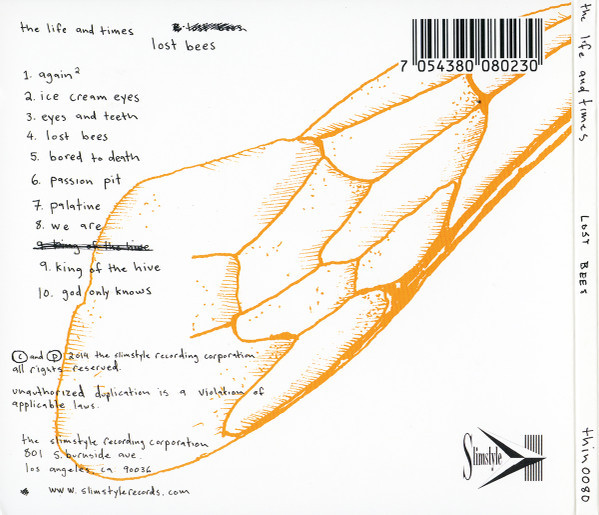 the life and times
lost bees
1. again²
2. ice cream eyes
3. eyes and teeth
4. lost bees
5. bored to death
6. passion pit
7. palatine
8. we are
9. king of the hive
9. king of the hive
10. god only knows
c and p 2014 the slimstyle recording corporation
all rights reserved.
unauthorized duplication is a violation of
applicable laws.
the slimstyle recording corporation
801 S. burnside ave.
los angeles, ca 90036
www.slimstylerecords.com
7 054380 080230
Slimstyle
the life and times
LOST BEES
thin0080